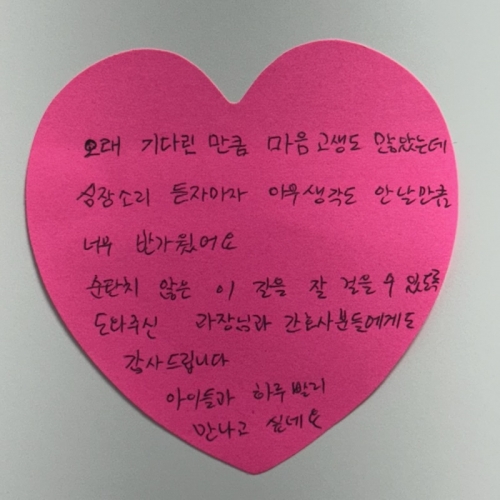 오래 기다린 만큼 마음고생도 많았는데
심장소리 듣자마자 아무생각도 안날만큼
너무 반가웠어요
순탄치 않은 이 길을 잘 걸을 수 있도록
도와주신 과장님과 간호사분들에게도
감사드립니다
아이들과 하루빨리
만나고 싶네요